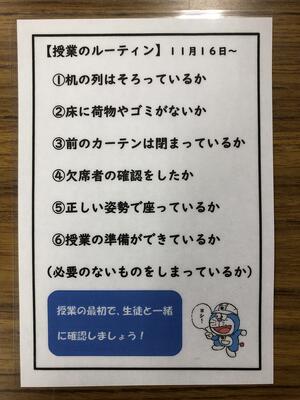 【授業のルーティン】 11月16日~
①机の列はそろっているか
②床に荷物やゴミがないか
③前のカーテンは閉まっているか
④欠席者の確認をしたか
⑤正しい姿勢で座っているか
⑥授業の準備ができているか
(必要のないものをしまっているか)
授業の最初で、生徒と一緒
に確認しましょう!
ヨシ!